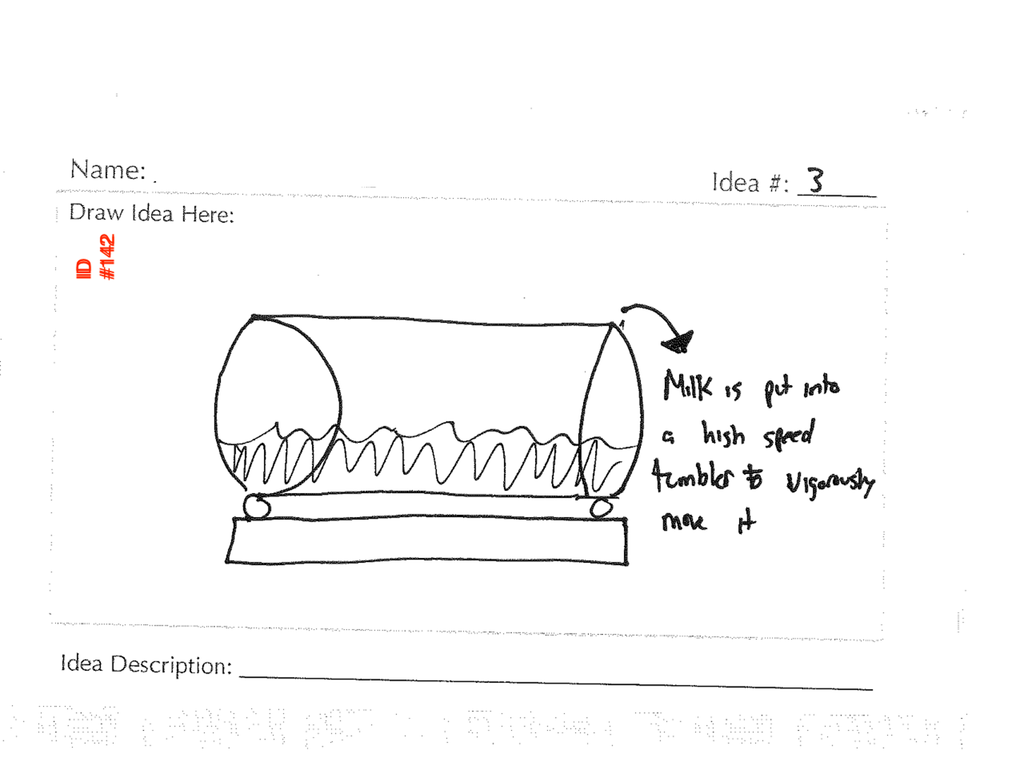 Name:
Idea #: 3
Draw Idea Here:
IID
#142
Milk is put into
a high speed
tumbler to vigorously
move it
Idea Description: